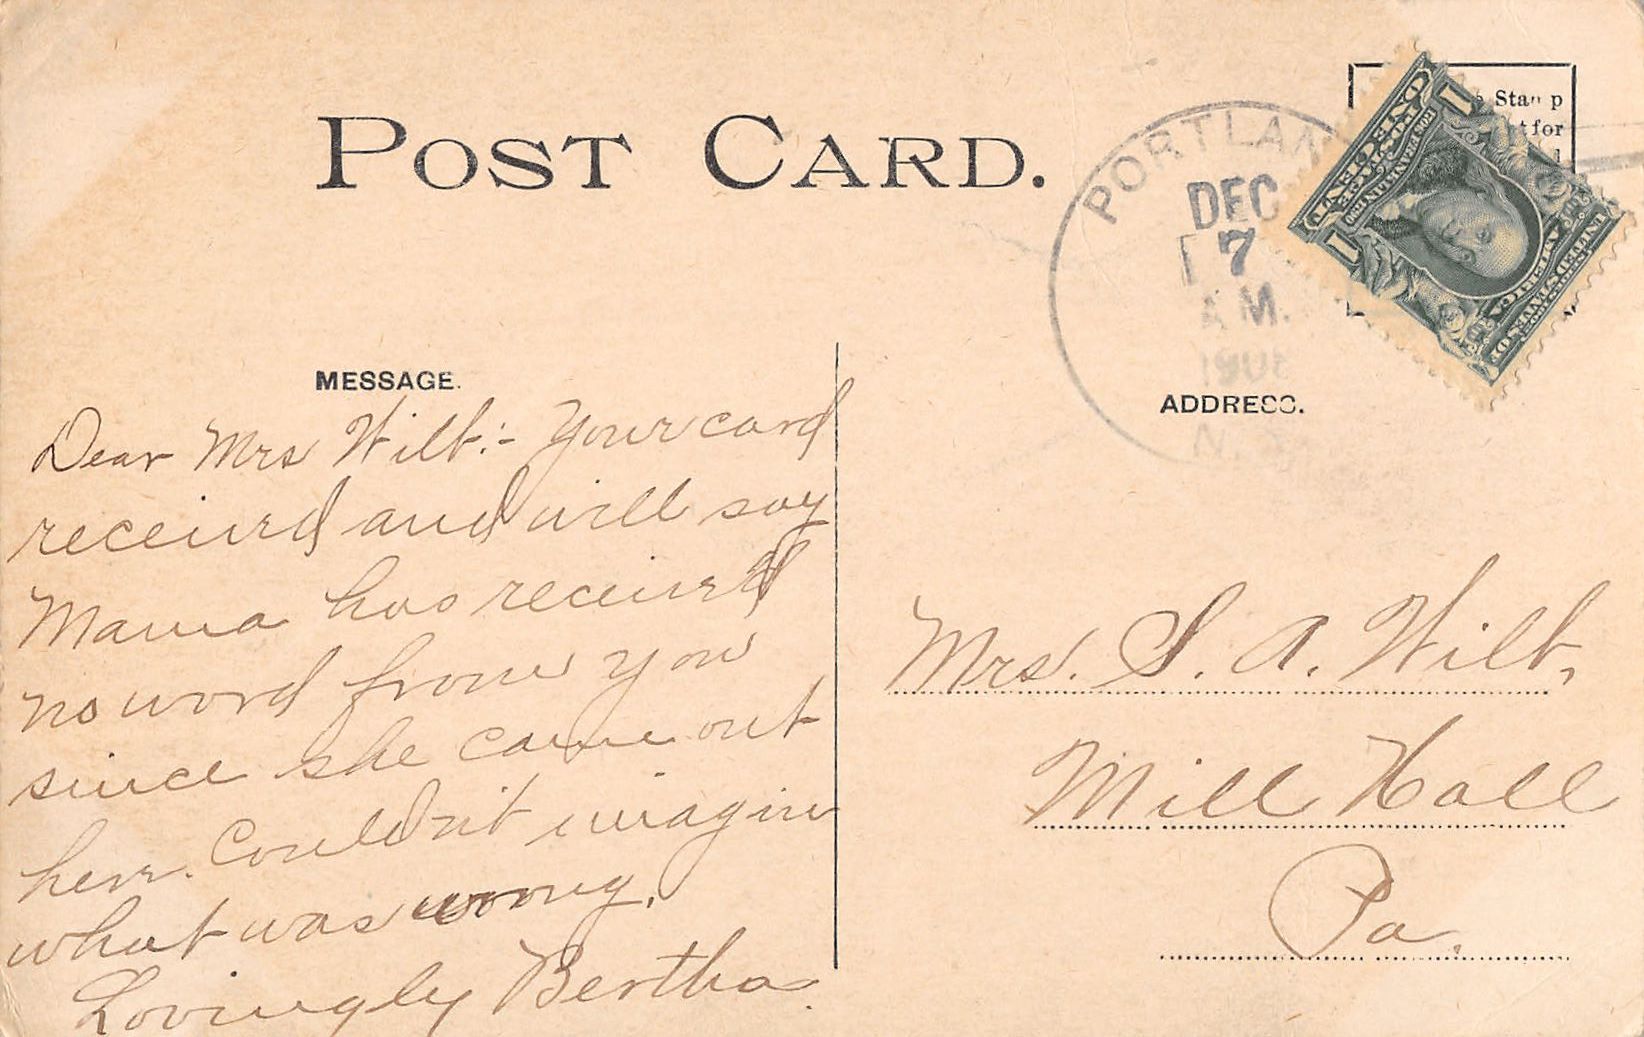 POST CARD.
PORTLAN
DEC
7
A M.
190
N.
Stamp
for
POSTAGE
ONE CENT
UNITED STATES OF
1
1
MESSAGE.
ADDRESS.
Dear Mrs Wilt:- Your card
received and will say
Mama has received
no word from you
since she came out
here. Couldn't imagine
what was wrong.
Lovingly Bertha.
Mrs. S. A. Wilt,
Mill Hall
Pa.